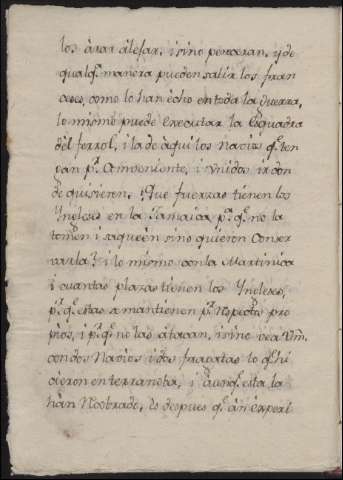 los àrar àlejar, i sino pereceran, y de
qualq.ª manera pueden salir los fran
ceses, como lo han echo en toda la Guerra,
lo mismo puede executar la Esquadra
del ferrol, i la de àqui los Navios q.e ten
gan p.r Combeniente, i vnidos ir don
de quisieren. Que fuerzas tienen los
Yngleses en la Jamaica p.a q.e no la
tomen i saqueèn sino quieren Conser
varla? i lo mismo con la Martinica
i cuantas plazas tienen los Yngleses,
p.r q.e estas se mantienen p.r respectos pro
pios, i p.r q.e no las àtacan, i sino vea Vm.
con dos Navios i dos fragatas lo q.e hi
cieron en terranoba, i àunq.e esta la
hàn recobrado, es despues q.e àn experi